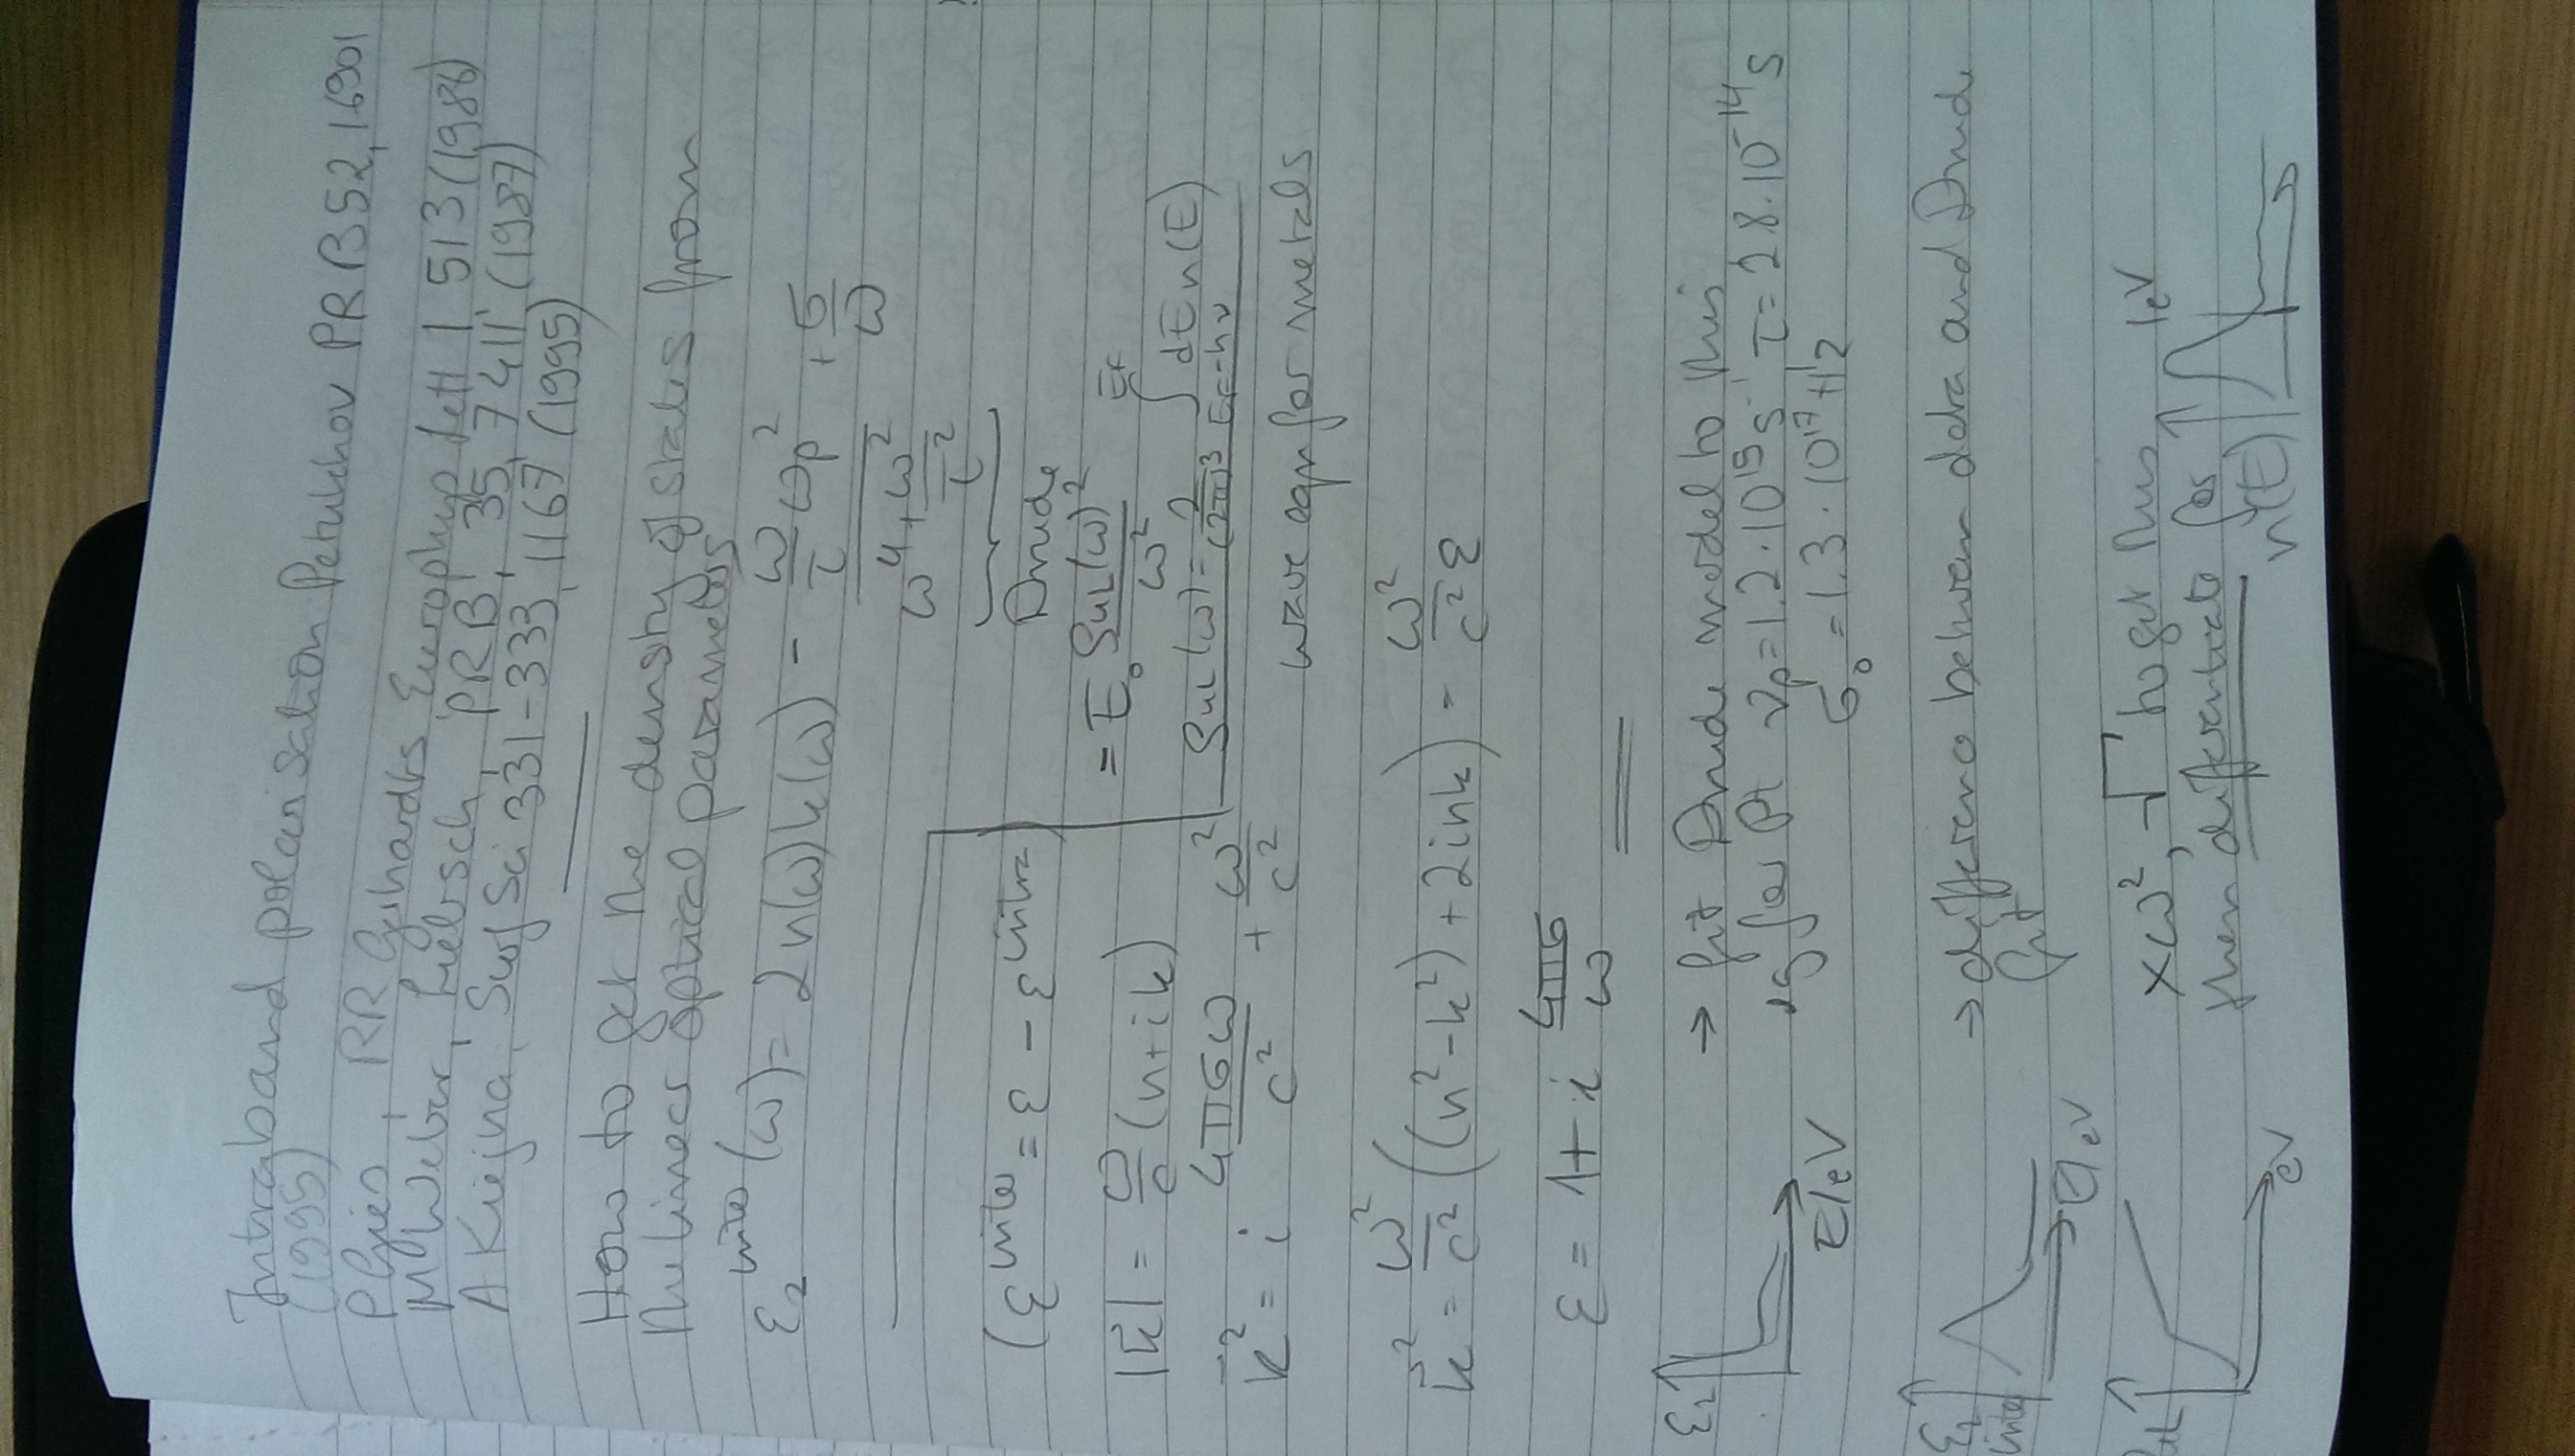 Intraband polarisation Petukhov PRB52, 16901
(1995)
P Gies, RR Gerhardts Europhys Lett 1 513 (1986)
M Weber, Liebsch, PRB, 35, 7411 (1987)
A Kiejna, Surf Sci 331-333, 1167 (1995)
How to get the density of states from
the linear optical parameters
ε₂^inter (ω) = 2n(ω)k(ω) - (ω/τ ωp²)/(ω⁴+ω²/τ²) + σ/ω
Drude
(ε^inter = ε - ε^intra)
= E₀ SUL(ω)²/ω²
SUL(ω) = 2/(2π)³ ∫_{EF-hν}^{EF} dE n(E)
|k̄| = ω/c (n+ik)
k̄² = i 4πσω/c² + ω²/c²
wave eqn for metals
k̄² = ω²/c² ((n²-k²)+2ink) = ω²/c² ε
ε = 1 + i 4πσ/ω
ε₂
E/eV
→ fit Drude model to this
eg for Pt νp = 1.2·10¹⁵ s⁻¹ τ = 28·10⁻¹⁴ s
σ₀ = 1.3·10¹⁷ Hz
ε₂ inter
E/eV
→ difference between data and Drude
fit
eV
×ω², √ to get this
then differentiate for
n(E)
1eV